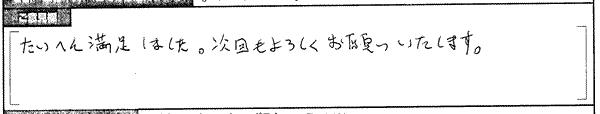 ご意見欄
たいへん満足しました。次回もよろしくお願いいたします。